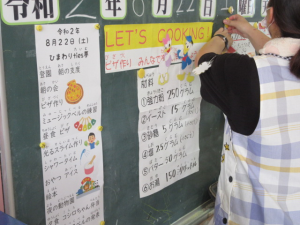 令和 2 年 8月22日
令和2年
8月22日(土)
ひまわりfies亭
登園 朝の支度
朝の会
ピザ作り
ミュージックベルの練習
昼食 ピザ
光るスライム作り
シャワータイム
おやつ アイス
絵本
LET'S COOKING!
ピザ作り みんなで
材料
①強力粉 250グラム
②イースト 15グラム
③砂糖 5グラム
④塩 2.5グラム
⑤バター 50グラム
⑥お湯 150